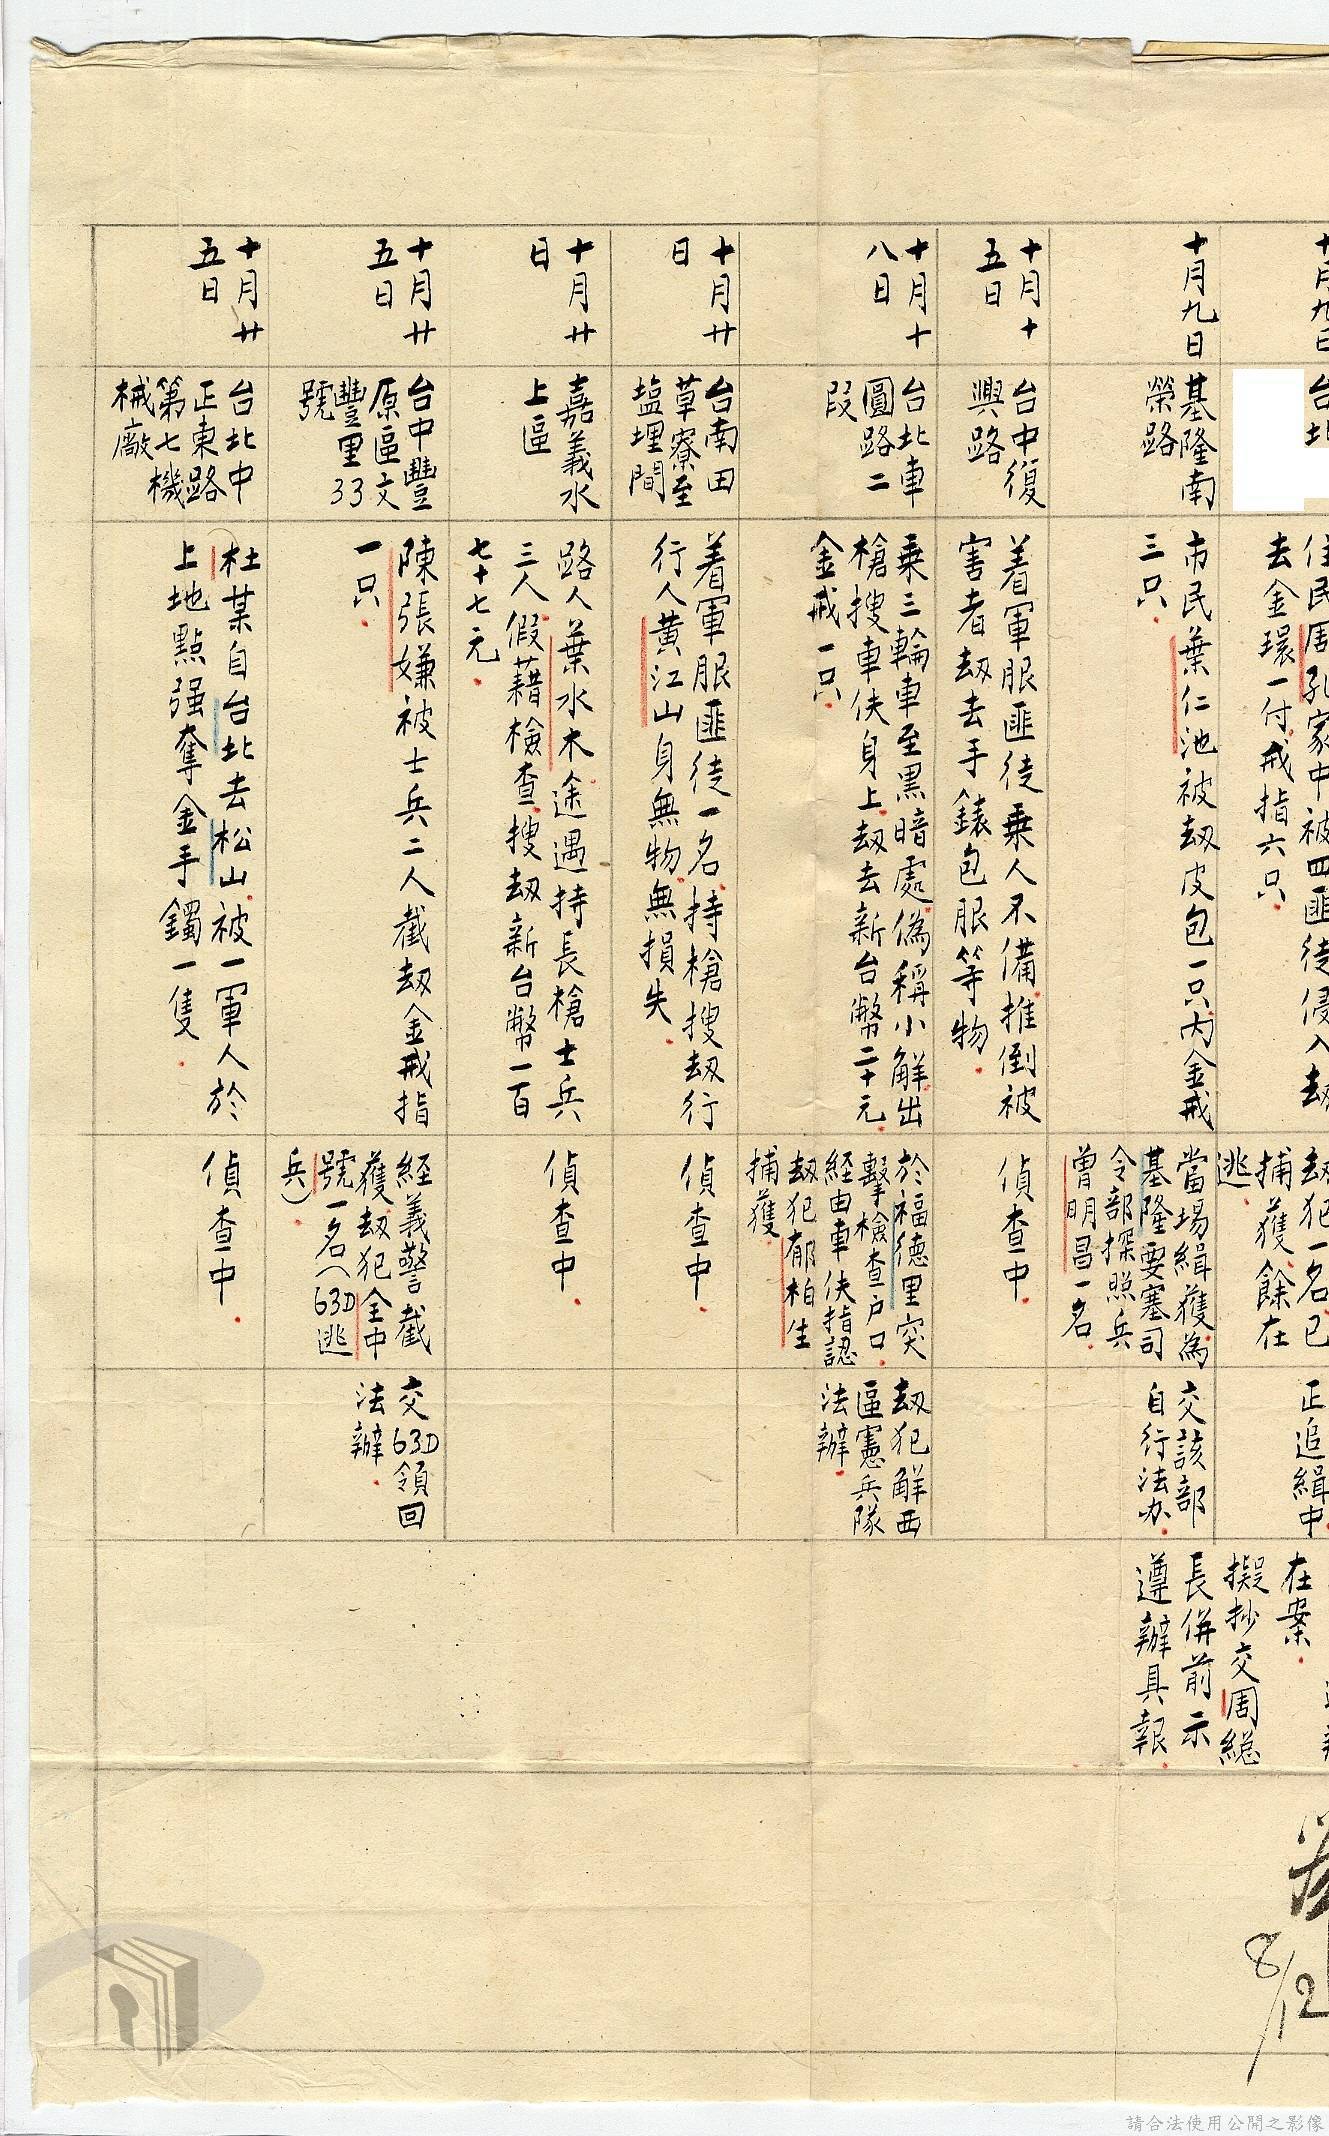 十月九日
台北
住民周孔家中被四匪徒侵入劫
去金環一付.戒指六只.
劫犯一名已
捕獲.餘在
逃.
正追緝中.
十月九日
基隆南
榮路
市民葉仁池被劫皮包一只.內金戒
三只.
當場緝獲為
基隆要塞司
令部探照兵
曾明昌一名.
交該部
自行法办.
在案.
擬抄交周總
長併前示
遵辦具報.
十月十
五日
台中復
興路
着軍服匪徒乘人不備.推倒被
害者劫去手錶包服等物.
偵查中.
十月十
八日
台北車
圓路二
段
乘三輪車至黑暗處.偽稱小解.出
槍搜車伕身上劫去新台幣二十元.
金戒一只.
於福德里突
擊檢查户口.
経由車伕指認
劫犯郁柏生
捕獲.
劫犯解西
區憲兵隊
法辦.
十月廿
日
台南田
草寮至
塩埕間
着軍服匪徒一名.持槍搜劫行
行人黄江山身無物.無損失.
偵查中.
十月廿
日
嘉義水
上區
路人葉水木.途遇持長槍士兵
三人.假藉檢查.搜劫新台幣一百
七十七元.
偵查中.
十月廿
五日
台中豐
原區文
豐里33
號
陳張嫌被士兵二人截劫金戒指
一只.
経義警截
獲.劫犯全中
號一名(63D逃
兵)
交63D領回
法辦.
十月廿
五日
台北中
正東路
第七機
械廠
杜某自台北去松山.被一軍人於
上地點强奪金手鐲一隻.
偵查中.
8/12
請合法使用公開之影像